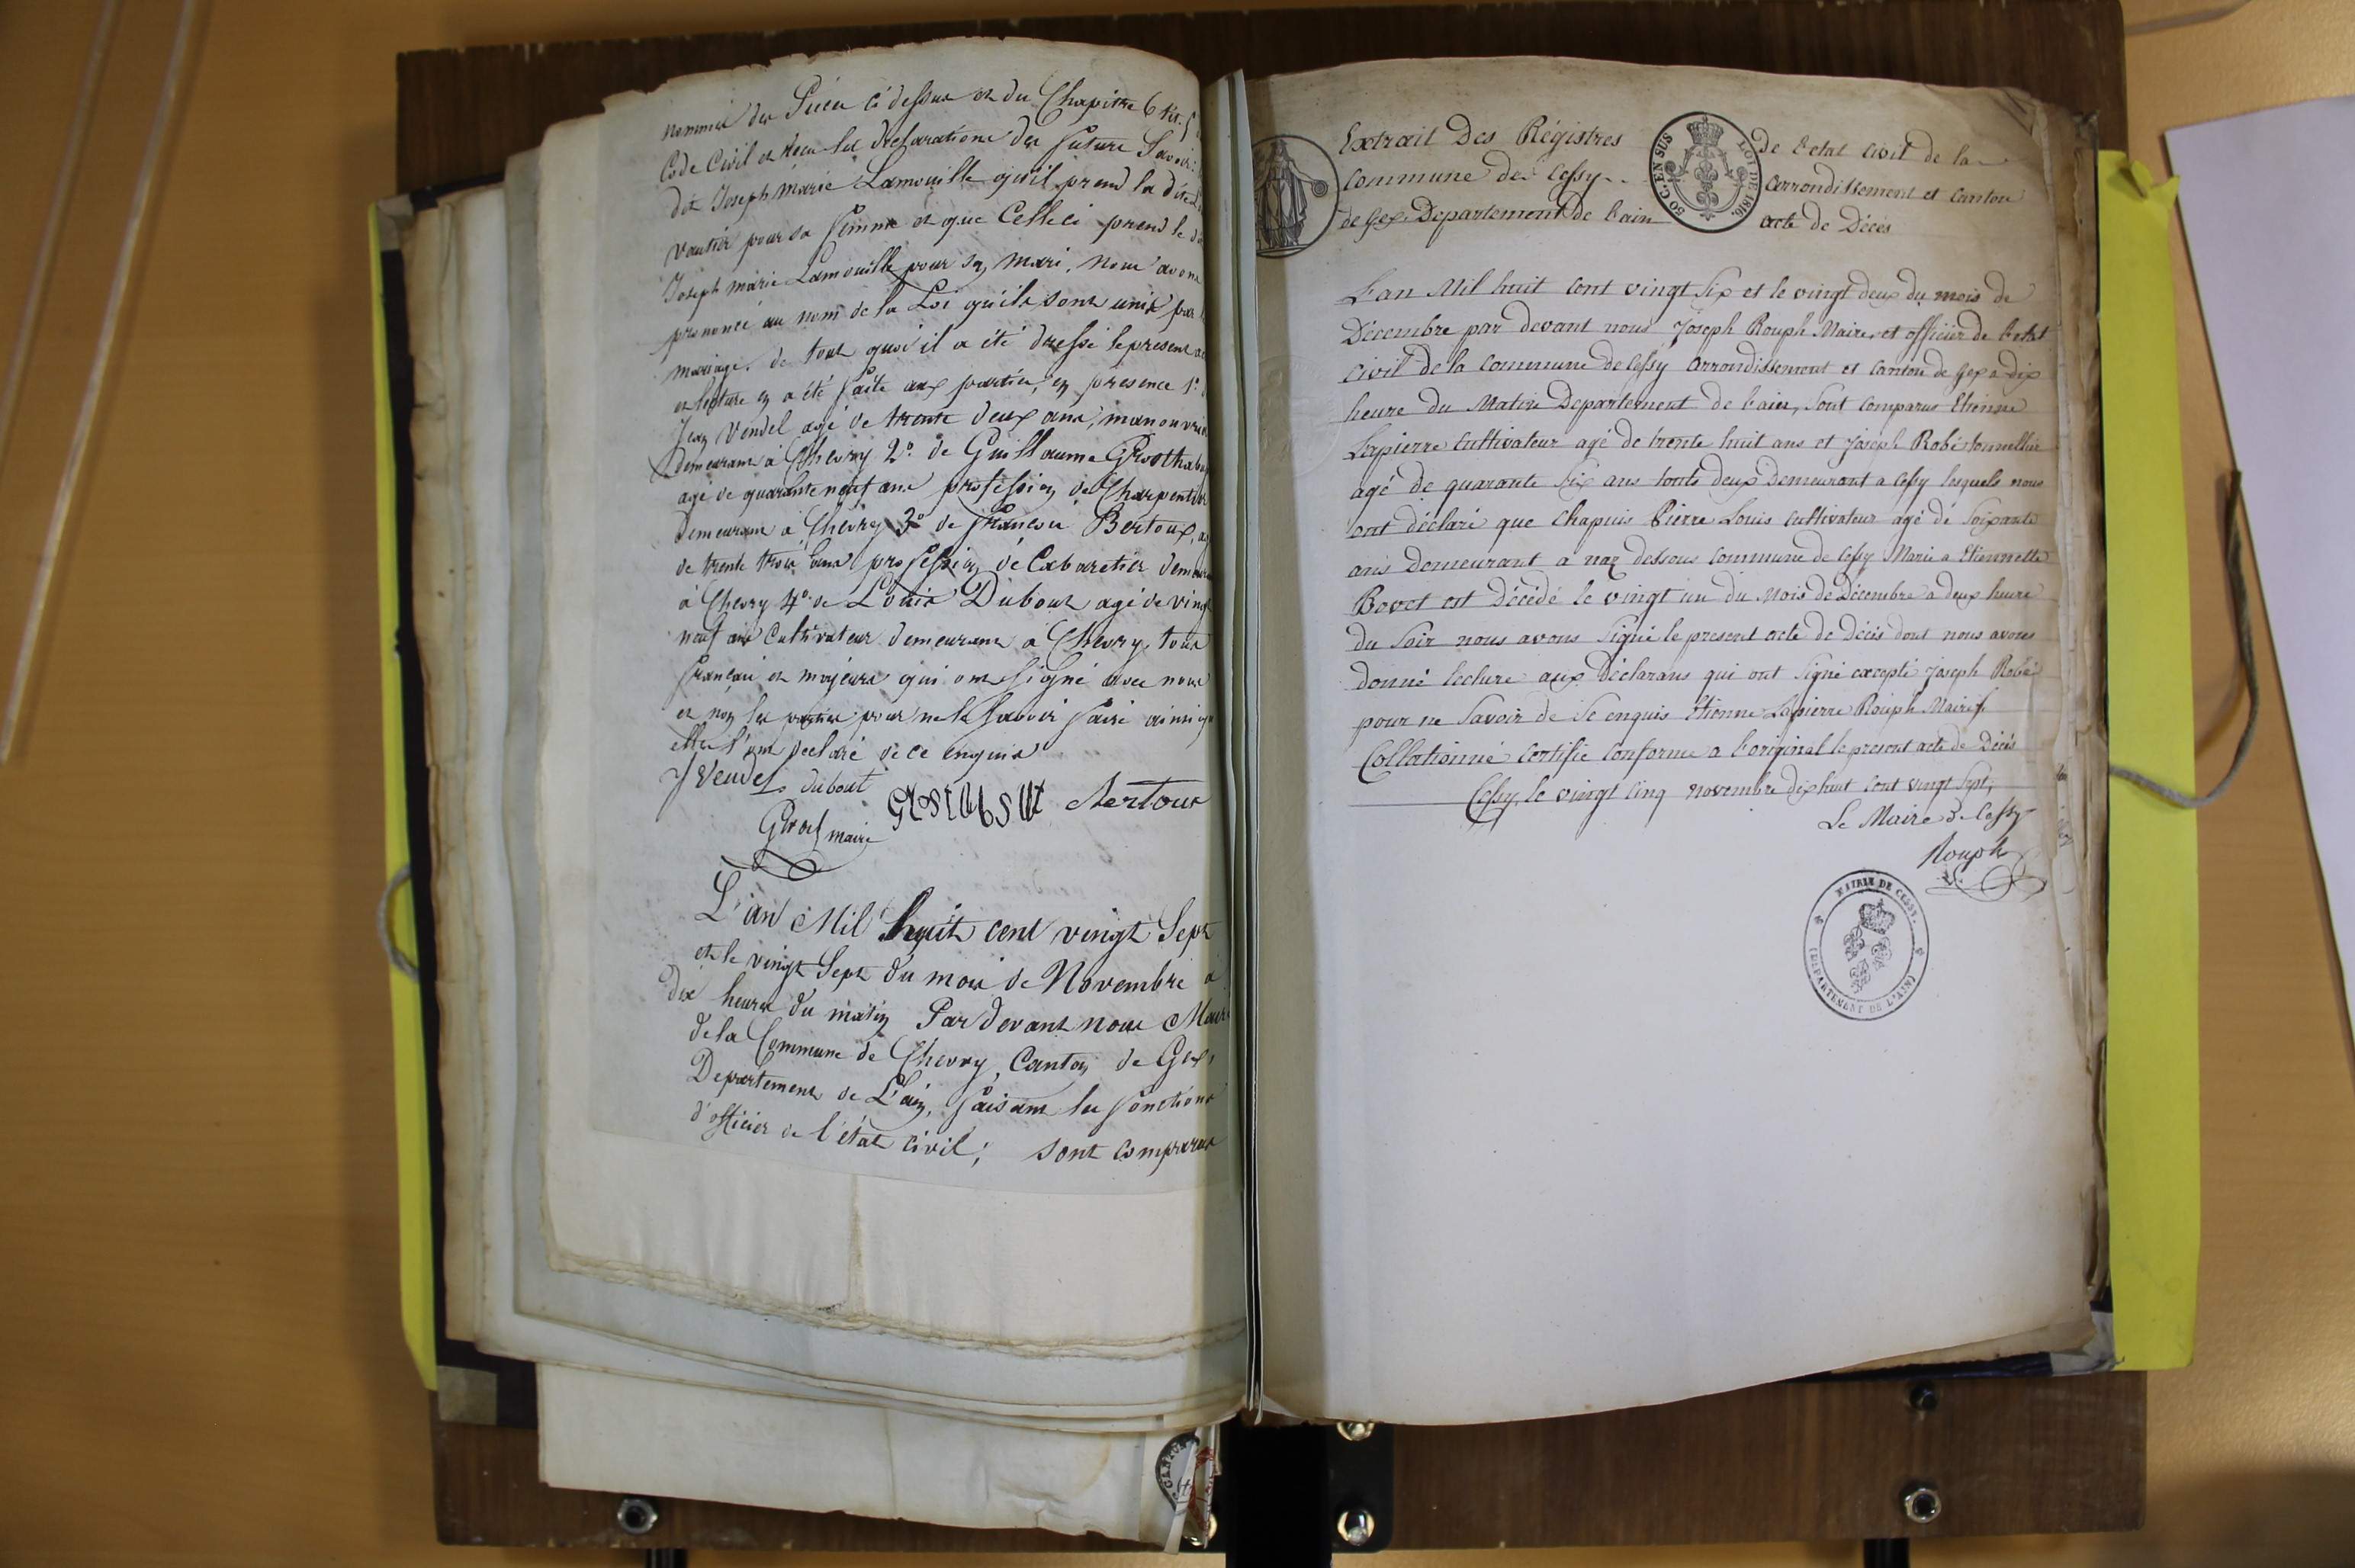 nommée des Pièces ci dessus et du Chapitre 6 tit. 5
Code Civil et Recu les declarations des futurs Savoir:
dit Joseph marie Lamouille qu'il prend la dite
vautier pour sa femme et que Celle ci prend le
Joseph marie Lamouille pour son mari, nous avons
prononcé au nom de la Loi qu'ils sont unis par
mariage. de tout quoi il a été dressé le present
et lecture en a été faite aux parties, en présence 1º
Jean Vendel agé de trente deux ans, manouvrier
demeurant à Chevry 2º de Guillaume
agé de quarante neuf ans profession de Charpentier
demeurant à Chevry 3º de françois Bertoux,
de trente trois ans profession de Cabaretier
à Chevry 4º de Louis Dubout agé de vingt
neuf ans Cultivateur demeurant à Chevry, tous
français et majeurs qui ont signé avec nous
et non les parties pour ne le savoir faire ainsi
elles l'ont declaré de ce enquis
J Vendel dubout Bertoux
maire
L'an Mil huit cent vingt Sept
et le vingt Sept du mois de Novembre à
dix heures du matin Par devant nous Maire
de la Commune de Chevry, Canton de Gex,
Departement de L'ain, faisant les fonctions
d'officier de l'état civil; sont comparus
Extrait Des Régistres de l'etat civil de la
Commune de Cessy Arrondissement et canton
de Gex Departement de l'ain acte de Décès
50 C. EN SUS
LOI DE 1816.
L'an Mil huit cent vingt six et le vingt deux du mois de
Décembre par devant nous Joseph Rouph Maire et officier de l'etat
civil de la Commune de Cessy Arrondissement et canton de Gex a dix
heure du Matin Departement de l'ain, sont comparus Etienne
Lapierre cultivateur agé de trente huit ans et Joseph Robé tonnellier
agé de quarante six ans touts deux Demeurant a Cessy lesquels nous
ont déclaré que Chapuis Pierre Louis cultivateur agé de soixante
ans Demeurant a naz dessous commune de Cessy Marié a Etiennette
Bovet est Décédé le vingt un du Mois de Décembre a deux heure
du soir nous avons signé le present acte de décès dont nous avons
donné lecture aux Déclarans qui ont signé excepté Joseph Robé
pour ne savoir de ce enquis Etienne Lapierre Rouph Maire
Collationné certifié conforme a l'original le present acte de Décès
Cessy, le vingt cinq novembre dix huit cent vingt sept,
Le Maire de Cessy
Rouph
MAIRIE DE CESSY.
(DÉPARTEMENT DE L'AIN)